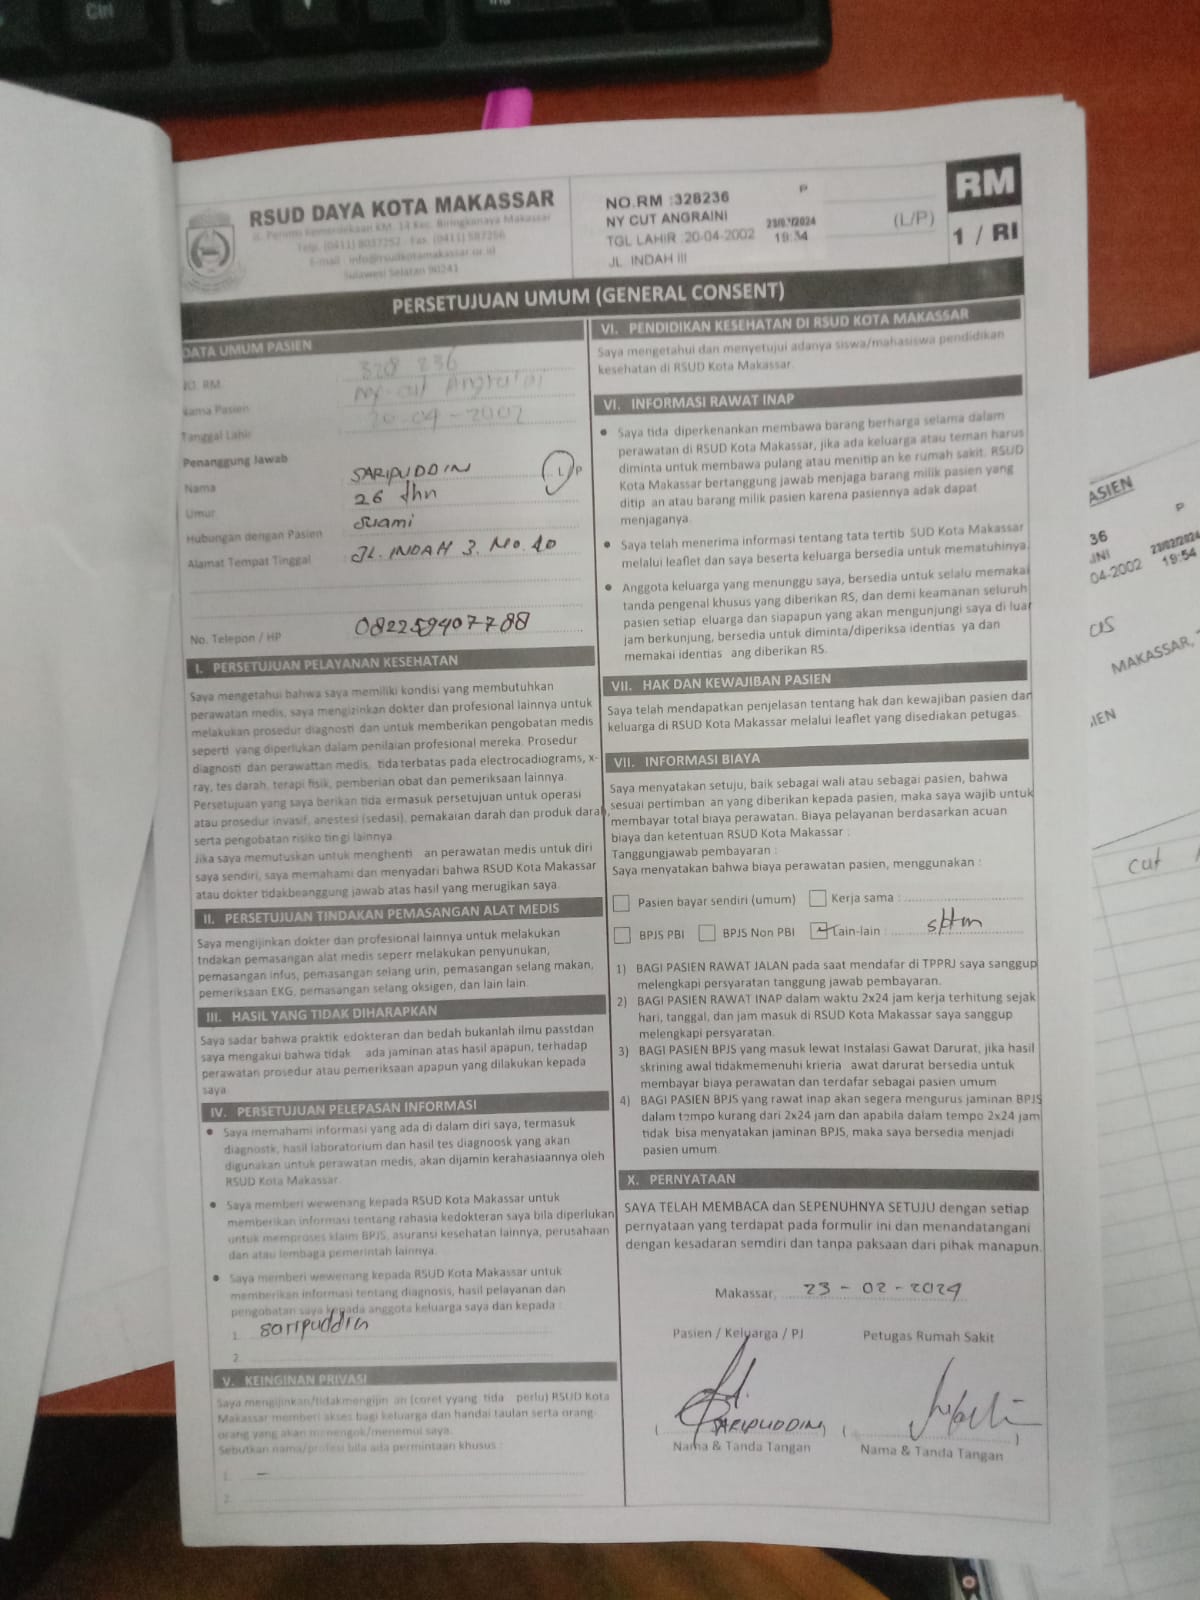 Ctrl
RSUD DAYA KOTA MAKASSAR
Jl. Perintis Kemerdekaan KM. 14 Kec. Biringkanaya Makassar
Telp. (0411) Fax. (0411) 587256
E-mail : info@rsudkotamakassar.or.id
Sulawesi Selatan 90241
NO.RM :328236 P
NY CUT ANGRAINI
TGL LAHIR :20-04-2002
JL. INDAH III
(L/P)
RM
1 / RI
PERSETUJUAN UMUM (GENERAL CONSENT)
DATA UMUM PASIEN
NO. RM 328 236
Nama Pasien Ny. cut
Tanggal Lahir 20-04-2002
Penanggung Jawab
Nama SARIPUDDIN L/P
Umur 26 thn
Hubungan dengan Pasien Suami
Alamat Tempat Tinggal JL. INDAH 3. No. 40
No. Telepon / HP 082259407788
I. PERSETUJUAN PELAYANAN KESEHATAN
Saya mengetahui bahwa saya memiliki kondisi yang membutuhkan
perawatan medis, saya mengizinkan dokter dan profesional lainnya untuk
melakukan prosedur diagnosti dan untuk memberikan pengobatan medis
seperti yang diperlukan dalam penilaian profesional mereka. Prosedur
diagnosti dan perawattan medis, tida terbatas pada electrocadiograms, x-
ray, tes darah, terapi fisik, pemberian obat dan pemeriksaan lainnya.
Persetujuan yang saya berikan tida ermasuk persetujuan untuk operasi
atau prosedur invasif, anestesi (sedasi), pemakaian darah dan produk darah,
serta pengobatan risiko tingi lainnya
Jika saya memutuskan untuk menghenti an perawatan medis untuk diri
saya sendiri, saya memahami dan menyadari bahwa RSUD Kota Makassar
atau dokter tidakbeanggung jawab atas hasil yang merugikan saya.
II. PERSETUJUAN TINDAKAN PEMASANGAN ALAT MEDIS
Saya mengijinkan dokter dan profesional lainnya untuk melakukan
tndakan pemasangan alat medis seperr melakukan penyunukan,
pemasangan infus, pemasangan selang urin, pemasangan selang makan,
pemeriksaan EKG, pemasangan selang oksigen, dan lain lain.
III. HASIL YANG TIDAK DIHARAPKAN
Saya sadar bahwa praktik edokteran dan bedah bukanlah ilmu passtdan
saya mengakui bahwa tidak ada jaminan atas hasil apapun, terhadap
perawatan prosedur atau pemeriksaan apapun yang dilakukan kepada
saya.
IV. PERSETUJUAN PELEPASAN INFORMASI
• Saya memahami informasi yang ada di dalam diri saya, termasuk
diagnostk, hasil laboratorium dan hasil tes diagnoosk yang akan
digunakan untuk perawatan medis, akan dijamin kerahasiaannya oleh
RSUD Kota Makassar.
• Saya memberi wewenang kepada RSUD Kota Makassar untuk
memberikan informasi tentang rahasia kedokteran saya bila diperlukan
untuk memproses klaim BPJS, asuransi kesehatan lainnya, perusahaan
dan atau lembaga pemerintah lainnya.
• Saya memberi wewenang kepada RSUD Kota Makassar untuk
memberikan informasi tentang diagnosis, hasil pelayanan dan
pengobatan saya kepada anggota keluarga saya dan kepada :
1. saripuddin
2.
V. KEINGINAN PRIVASI
Saya mengijinkan/tidakmengijin an (coret yyang tida perlu) RSUD Kota
Makassar memberi akses bagi keluarga dan handai taulan serta orang-
orang yang akan menengok/menemui saya.
Sebutkan nama/profesi bila ada permintaan khusus :
1. —
2.
VI. PENDIDIKAN KESEHATAN DI RSUD KOTA MAKASSAR
Saya mengetahui dan menyetujui adanya siswa/mahasiswa pendidikan
kesehatan di RSUD Kota Makassar.
VI. INFORMASI RAWAT INAP
• Saya tida diperkenankan membawa barang berharga selama dalam
perawatan di RSUD Kota Makassar, jika ada keluarga atau teman harus
diminta untuk membawa pulang atau menitip an ke rumah sakit. RSUD
Kota Makassar bertanggung jawab menjaga barang milik pasien yang
ditip an atau barang milik pasien karena pasiennya adak dapat
menjaganya.
• Saya telah menerima informasi tentang tata tertib SUD Kota Makassar
melalui leaflet dan saya beserta keluarga bersedia untuk mematuhinya.
• Anggota keluarga yang menunggu saya, bersedia untuk selalu memakai
tanda pengenal khusus yang diberikan RS, dan demi keamanan seluruh
pasien setiap eluarga dan siapapun yang akan mengunjungi saya di luar
jam berkunjung, bersedia untuk diminta/diperiksa identias ya dan
memakai identias ang diberikan RS.
VII. HAK DAN KEWAJIBAN PASIEN
Saya telah mendapatkan penjelasan tentang hak dan kewajiban pasien dan
keluarga di RSUD Kota Makassar melalui leaflet yang disediakan petugas.
VII. INFORMASI BIAYA
Saya menyatakan setuju, baik sebagai wali atau sebagai pasien, bahwa
sesuai pertimban an yang diberikan kepada pasien, maka saya wajib untuk
membayar total biaya perawatan. Biaya pelayanan berdasarkan acuan
biaya dan ketentuan RSUD Kota Makassar :
Tanggungjawab pembayaran :
Saya menyatakan bahwa biaya perawatan pasien, menggunakan :
Pasien bayar sendiri (umum) Kerja sama :
BPJS PBI BPJS Non PBI Lain-lain :
1) BAGI PASIEN RAWAT JALAN pada saat mendafar di TPPRJ saya sanggup
melengkapi persyaratan tanggung jawab pembayaran.
2) BAGI PASIEN RAWAT INAP dalam waktu 2x24 jam kerja terhitung sejak
hari, tanggal, dan jam masuk di RSUD Kota Makassar saya sanggup
melengkapi persyaratan.
3) BAGI PASIEN BPJS yang masuk lewat Instalasi Gawat Darurat, jika hasil
skrining awal tidakmemenuhi krieria awat darurat bersedia untuk
membayar biaya perawatan dan terdafar sebagai pasien umum
4) BAGI PASIEN BPJS yang rawat inap akan segera mengurus jaminan BPJS
dalam tempo kurang dari 2x24 jam dan apabila dalam tempo 2x24 jam
tidak bisa menyatakan jaminan BPJS, maka saya bersedia menjadi
pasien umum.
X. PERNYATAAN
SAYA TELAH MEMBACA dan SEPENUHNYA SETUJU dengan setiap
pernyataan yang terdapat pada formulir ini dan menandatangani
dengan kesadaran semdiri dan tanpa paksaan dari pihak manapun.
Makassar, 23 - 02 - 2024
Pasien / Keluarga / PJ Petugas Rumah Sakit
( SARIPUDDIN ) ( )
Nama & Tanda Tangan Nama & Tanda Tangan
ASIEN
36 P
INI 23/02/2024
04-2002 19:54
MAKASSAR,
IEN
cut